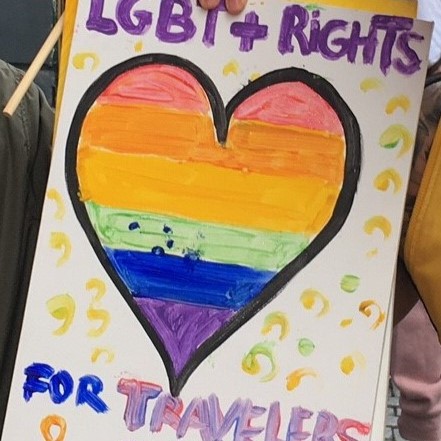 LGBT+ RiGHTS
FOR TRAVELERS